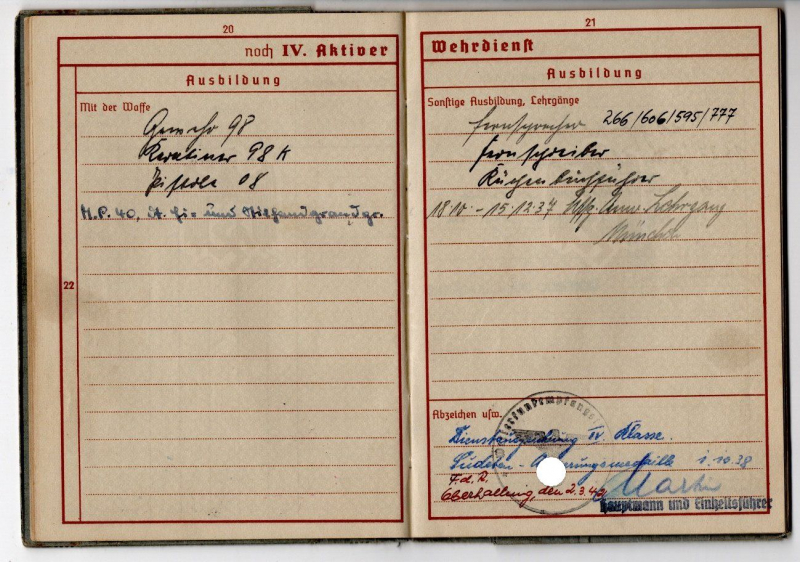 20
noch IV. Aktiver
Ausbildung
22
Mit der Waffe
Gewehr 98
Karabiner 98 K
Pistole 08
M.P. 40, St. Ei- und
21
Wehrdienst
Ausbildung
Sonstige Ausbildung, Lehrgänge
Fernsprecher 266/606/595/777
Fernschreiber
Küchenbuchführer
18.10. - 15.12.37 Uffz. Anw. Lehrgang
München
Abzeichen usw.
Dienstauszeichnung IV. Klasse.
Sudeten- 1.10.38
F.d.R.
den 2.3.
Hauptmann und Einheitsführer